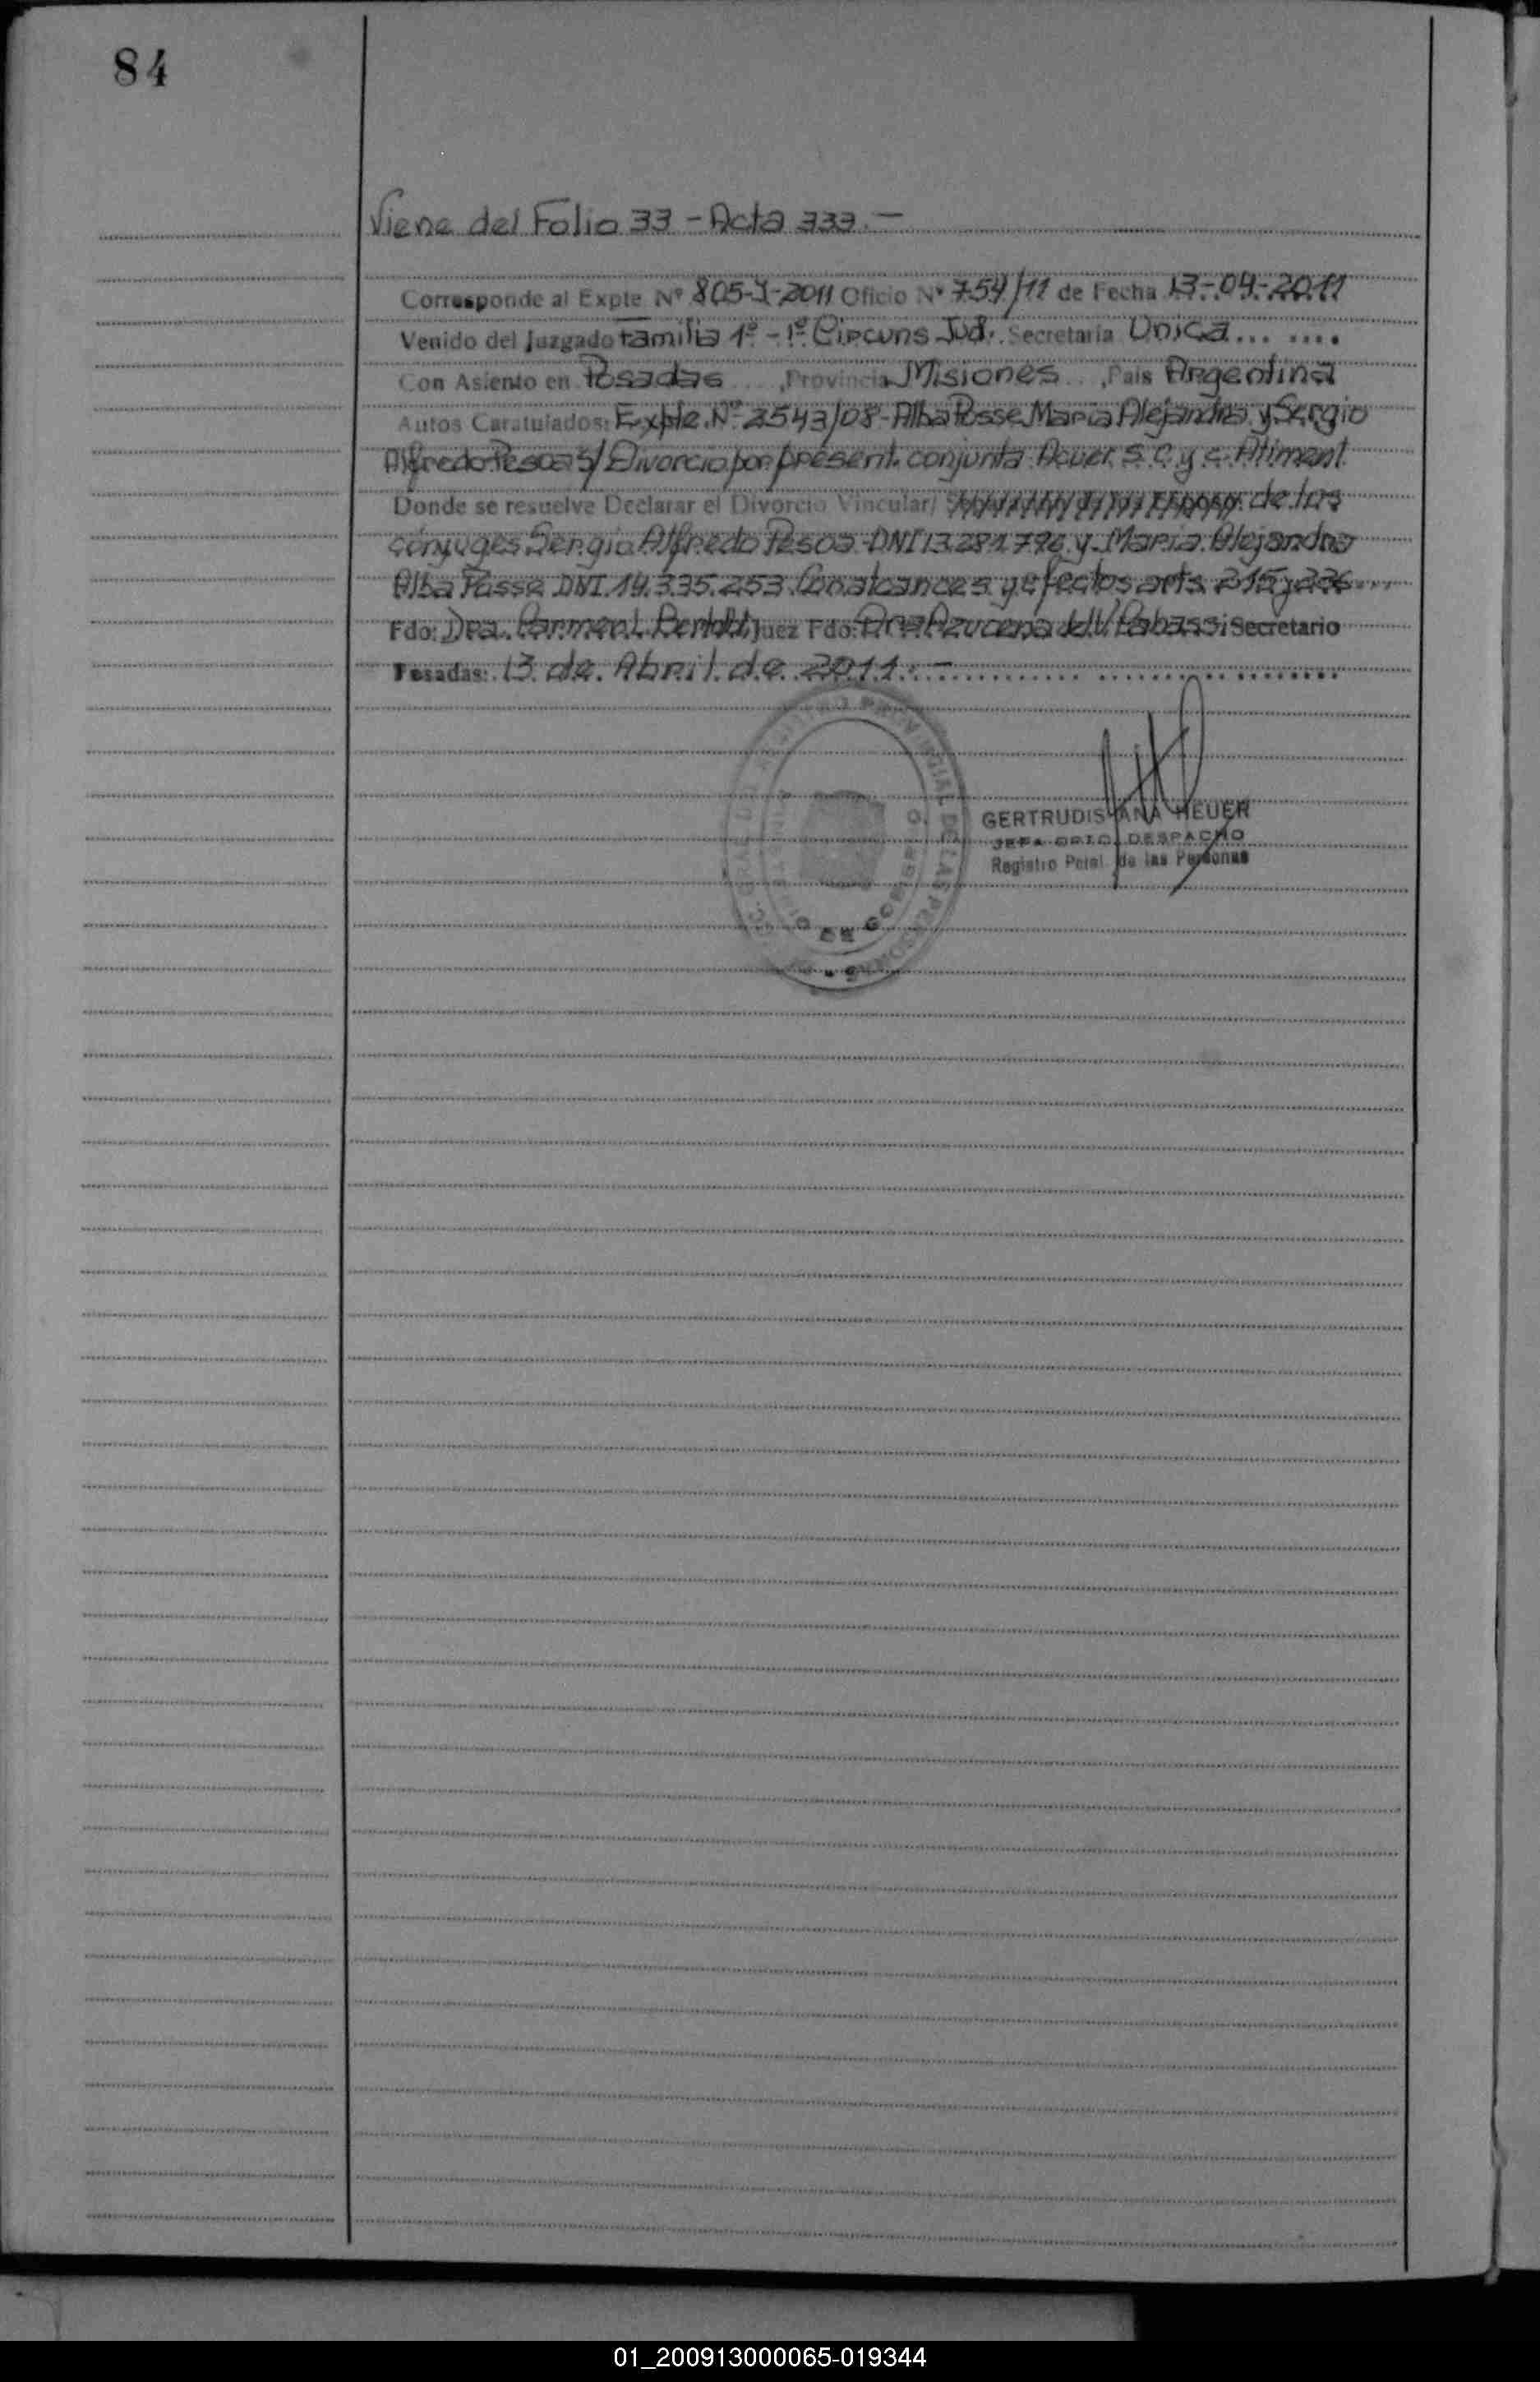 84
Viene del Folio 33 - Acta 333. -
Corresponde al Expte Nº 805-Y-2011 Oficio Nº 754/11 de Fecha 13-04-2011
Venido del Juzgado Familia 1º - 1º Circuns Jud. Secretaría Unica... ....
Con Asiento en Posadas ...., Provincia Misiones .., País Argentina
Autos Caratulados: Expte. Nº 3543/08 - Alba Posse María Alejandra y Sergio
Alfredo Pesoa S/ Divorcio por present. conjunta Acuer. S.C. y c. Aliment.
Donde se resuelve Declarar el Divorcio Vincular/ de los
cónyuges Sergio Alfredo Pesoa DNI 13.281.796 y María Alejandra
Alba Posse DNI 14.335.253. Con alcances y efectos arts 215 y 236...
Fdo: Dra. Carmen L. Bertoldi Juez Fdo: Ana Azucena del V. Secretario
Posadas: 13 de Abril de 2011. -
GERTRUDIS ANA HEUER
JEFA DPTO. DESPACHO
Registro Pcial. de las Personas
01_200913000065-019344